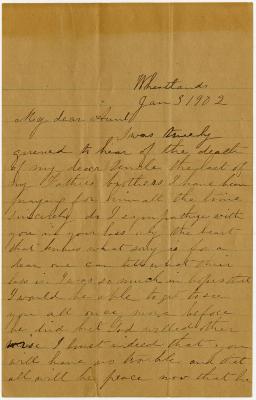 Wheatlands
Jan 3 1902
My dear Aunt
I was truely
grieved to hear of the death
of my dear Uncle the last of
my Fathers brothers I have been
praying for him all the time
Sincerely do I sympathize with
you in your loss only the heart
that knows what it is for a
dear one can tell what their
loss is I was so much in hopes that
I would be able to go to see
you all once more before
he died but God willed other
wise I trust indeed that you
will have no trouble and that
all will be peace now that he